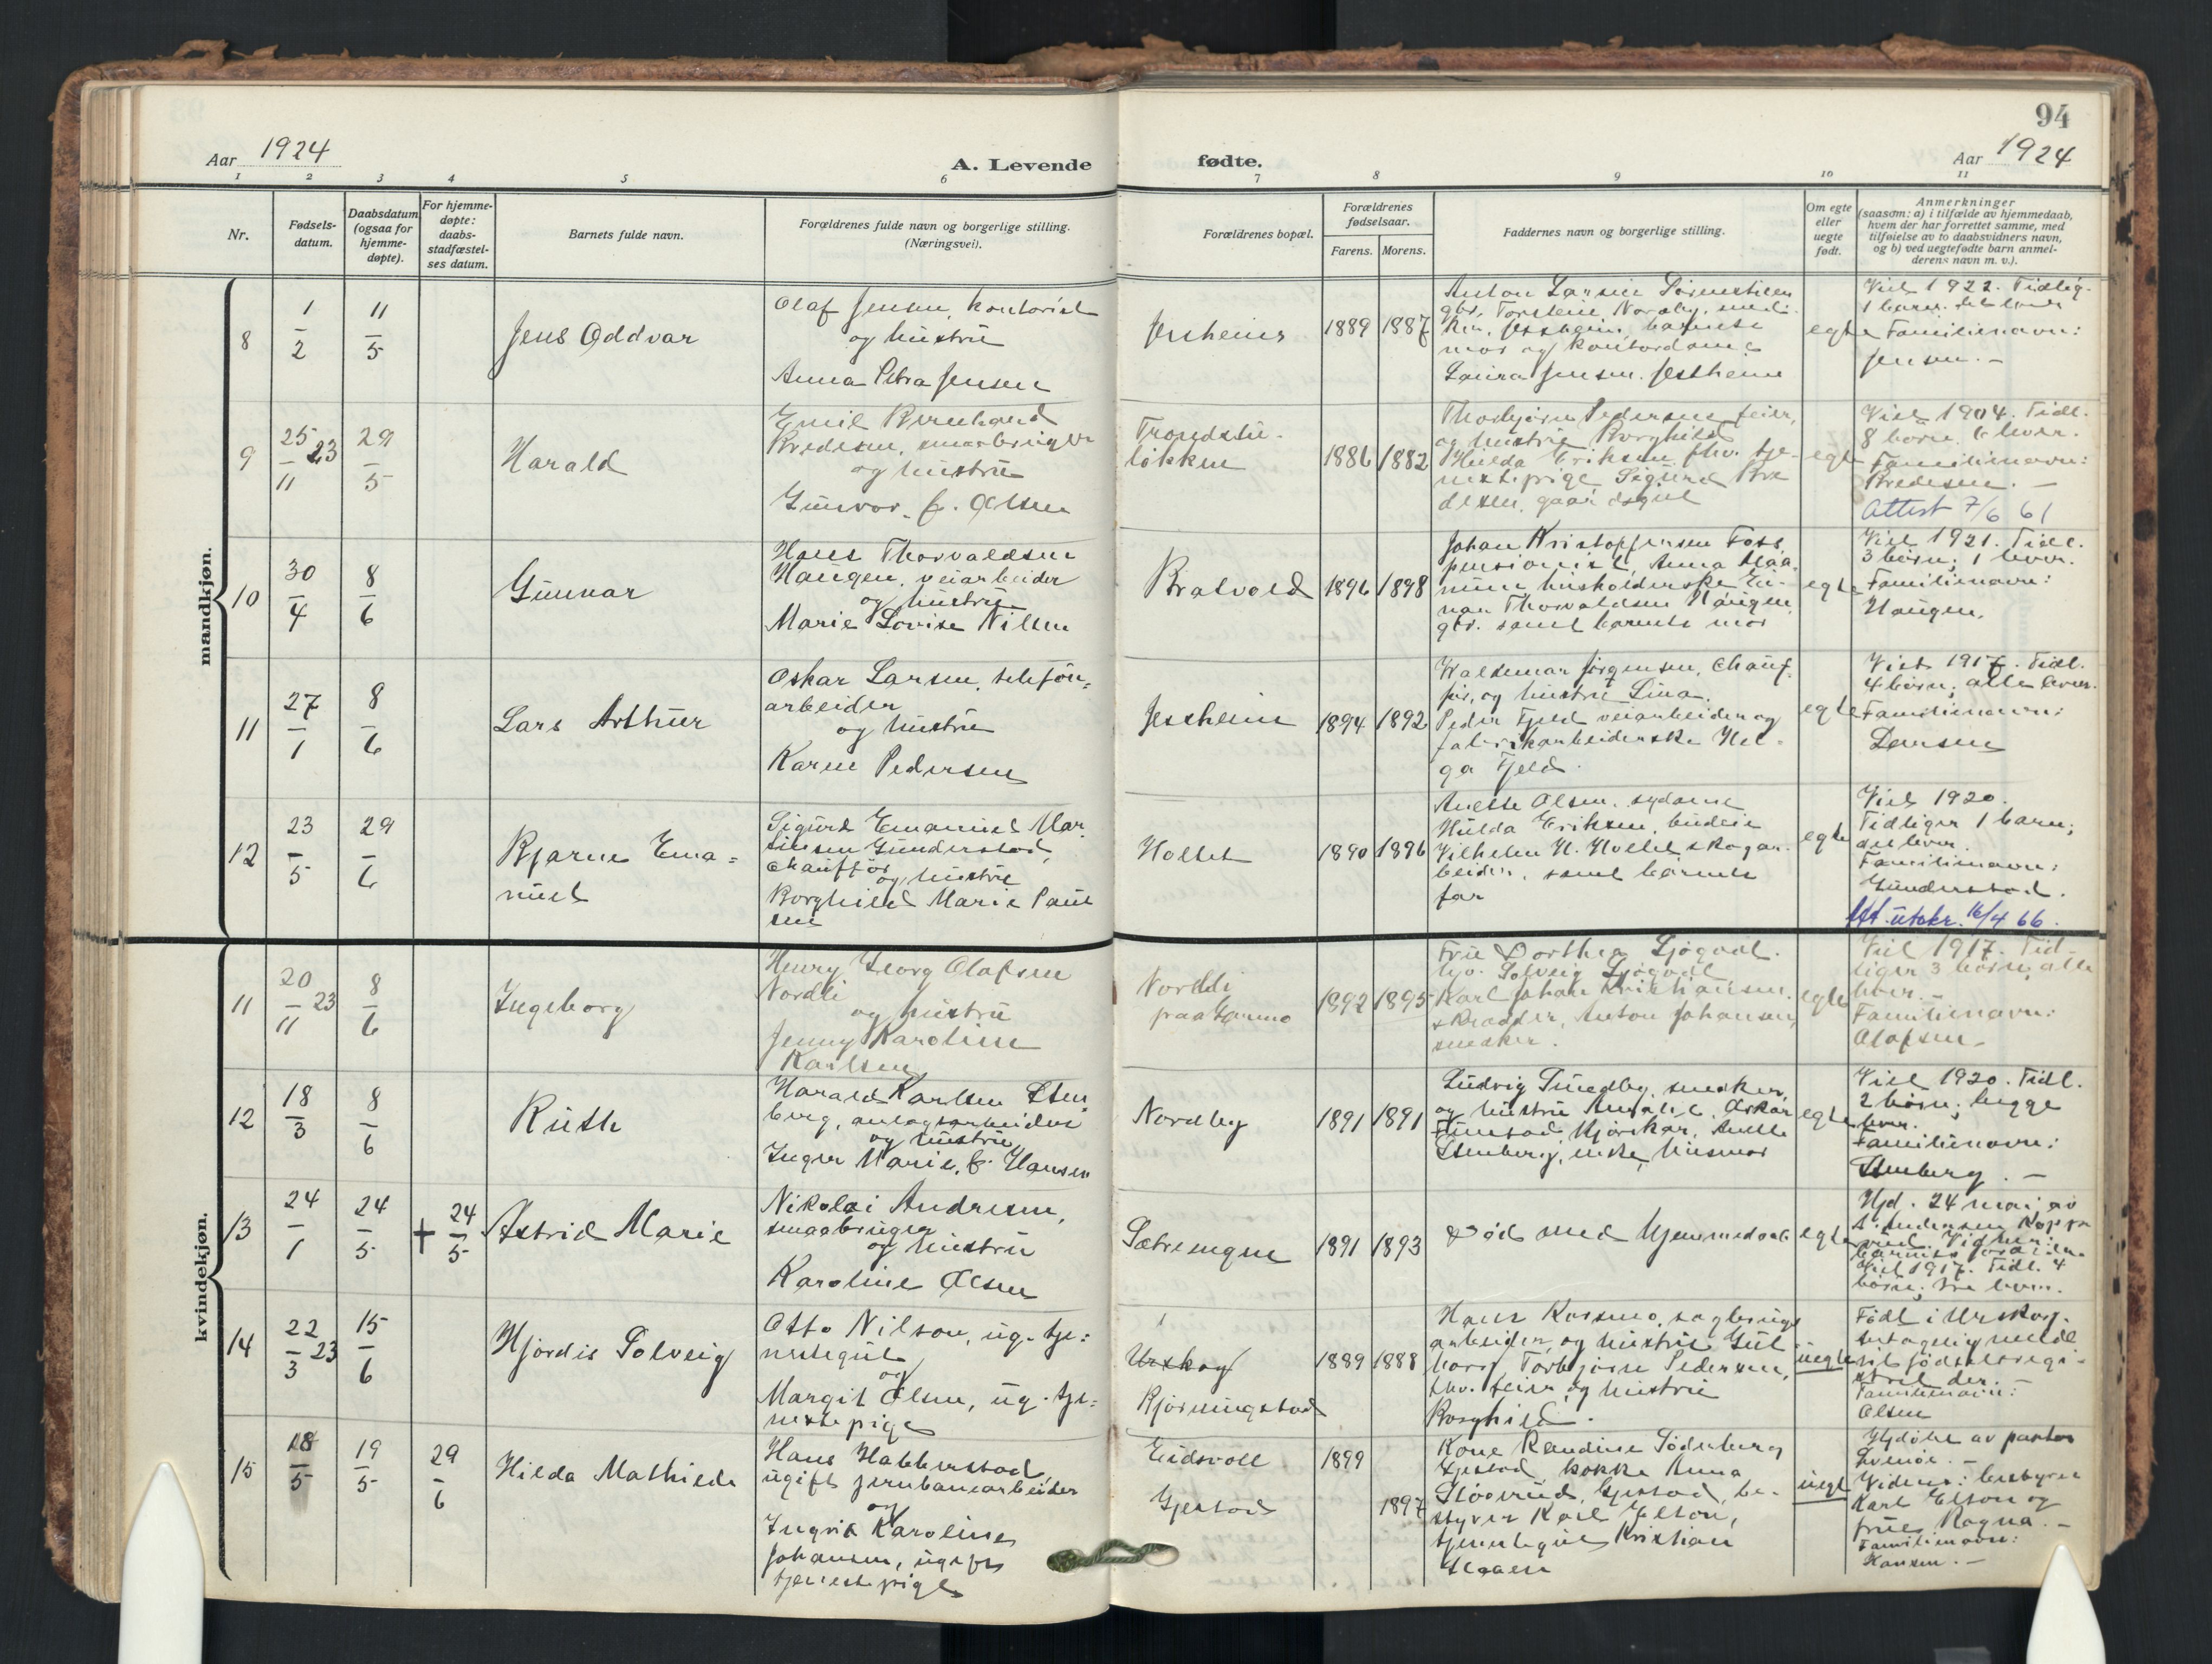 94
Aar 1924
A. Levende
fødte.
Aar 1924
1 2 3 4 5 6 7 8 9 10 11
Nr.
Fødsels-
datum.
Daabsdatum
(ogsaa for
hjemme-
døpte).
For hjemme-
døpte:
daabs-
stadfæstel-
ses datum.
Barnets fulde navn.
Forældrenes fulde navn og borgerlige stilling.
(Næringsvei).
Forældrenes bopæl.
Forældrenes
fødselsaar.
Farens. Morens.
Faddernes navn og borgerlige stilling.
Om egte
eller
uegte
født.
Anmerkninger
(saasom: a) i tilfælde av hjemmedaab,
hvem der har forrettet samme, med
tilføielse av to daabsvidners navn,
og b) ved uegtefødte barn anmel-
derens navn m. v.).
mandkjøn.
8
1/2
11/5
Jens Oddvar
Olaf Jensen, kontorist
og hustru
Anna Petra Jensen
Jessheim
1889 1887
mor og kontordame
Laura Jensen. Jessheim
egte
Viet 1922. Tidlig.
1 barn.
Familienavn:
Jensen. -
9
25/11 23
29/5
Harald
Emil Bernhard
Bredesen, smaabruger
og hustru
Gunvor, f. Olsen
Trondstu-
løkken
1886 1882
Thorbjørn Pedersen feier,
og hustru Borghild
Hilda Eriksen fhv. tje-
nestepige Sigurd Bre
desen, gaardsgut
egte
Viet 1904. Tidl.
8 børn. 6 lever.
Familienavn:
Bredesen. -
Attest 7/6 61
10
30/4
8/6
Gunnar
Hans Thorvaldsen
Haugen, veiarbeider
og hustru
Marie Lovise Nilsen
Bratvold
1896 1898
Johan Kristoffersen Foss
pensionist, Anna
husholderske Ei-
nar Thorvaldsen Haugen,
gbr. samt barnets mor
egte
Viet 1921. Tidl.
3 børn; 1 lever.
Familienavn:
Haugen.
11
27/1
8/6
Lars Arthur
Oskar Larsen, telefon-
arbeider
og hustru
Karen Pedersen
Jessheim
1894 1892
Waldemar Jørgensen, Chauf-
før, og hustru Lina.
Peder Fjeld veiarbeider og
fabrikarbeiderske Hel-
ga Fjeld.
egte
Viet 1917. Tidl.
4 børn; alle lever.
Familienavn:
Larsen
12
23/5
29/6
Bjarne Ema-
nuel
Sigurd Emanuel Mar-
tinsen Gunderstad,
chauffør
og hustru
Borghild Marie Paul
sen
Holtet
1890 1896
Anette Olsen, sydame
Hulda Eriksen, budeie
Vilhelm H. Holtet skogar-
beider, samt barnets
far
egte
Viet 1920.
Tidligere 1 barn;
det lever.
Familienavn:
Gunderstad.
Att. utskr. 16/4 66.
kvindekjøn.
11
20/11 23
8/6
Ingeborg
Henry Georg Olafsen
Nordli
og hustru
Jenny Karoline
Karlsen
Nordli
1892 1895
Fru Dorthea
Solveig
Karl Johan Kristiansen,
skrædder, Anton Johansen,
snekker.
egte
Viet 1917. Tid-
ligere 3 børn; alle
lever. -
Familienavn:
Olafsen -
12
18/3
8/6
Ruth
Harald Karlsen Sten-
berg, anlægsarbeider
og hustru
Inger Marie, f. Hansen
Nordby
1891 1891
Ludvig Smedby, snekker,
og hustru Amalie, Oskar
Anette
Stenberg, enke, husmor
egte
Viet 1920. Tidl.
2 børn; begge
lever.
Familienavn:
Stenberg. -
13
24/1
24/5
+ 24/5
Astrid Marie
Nikolai Andresen,
smaabruger
og hustru
Karoline Olsen
Sætrengen
1891 1893
Død med hjemmedaab
egte
Hjd. 24 mai av
Vidner:
barnets forældre
Viet 1917. Tidl. 4
børn; tre lever.
14
22/3 23
15/6
Hjørdis Solveig
Otto Nilsen, ug. tje-
nestegut
og
Margit Olsen, ug. tje-
nestepige
Urskog
Kjørningstad
1889 1888
Hans Kossmo, sagbrugs
arbeider, og hustru Gul
borg Torbjørn Pedersen,
fhv. feier, og hustru
Borghild.
uegte
Født i Urskog.
til fødselsregi-
stret der.
Familienavn:
Olsen
15
18/5
19/5
29/6
Hilda Mathilde
Hans Habberstad,
ugift jernbanearbeider
og
Ingrid Karoline
Johansen, ugift
tjenestepige
Eidsvoll
Gjestad
1899
1897
Kone Randine Søderberg
Gjestad, kokke Anna
Gjestad, be-
styrer Karl Elton,
tjenestegut Kristian
uegte
Hjdøbt av pastor
Vidner: bestyrer
Karl Elton og
frue Ragna. -
Familienavn:
Hansen. -